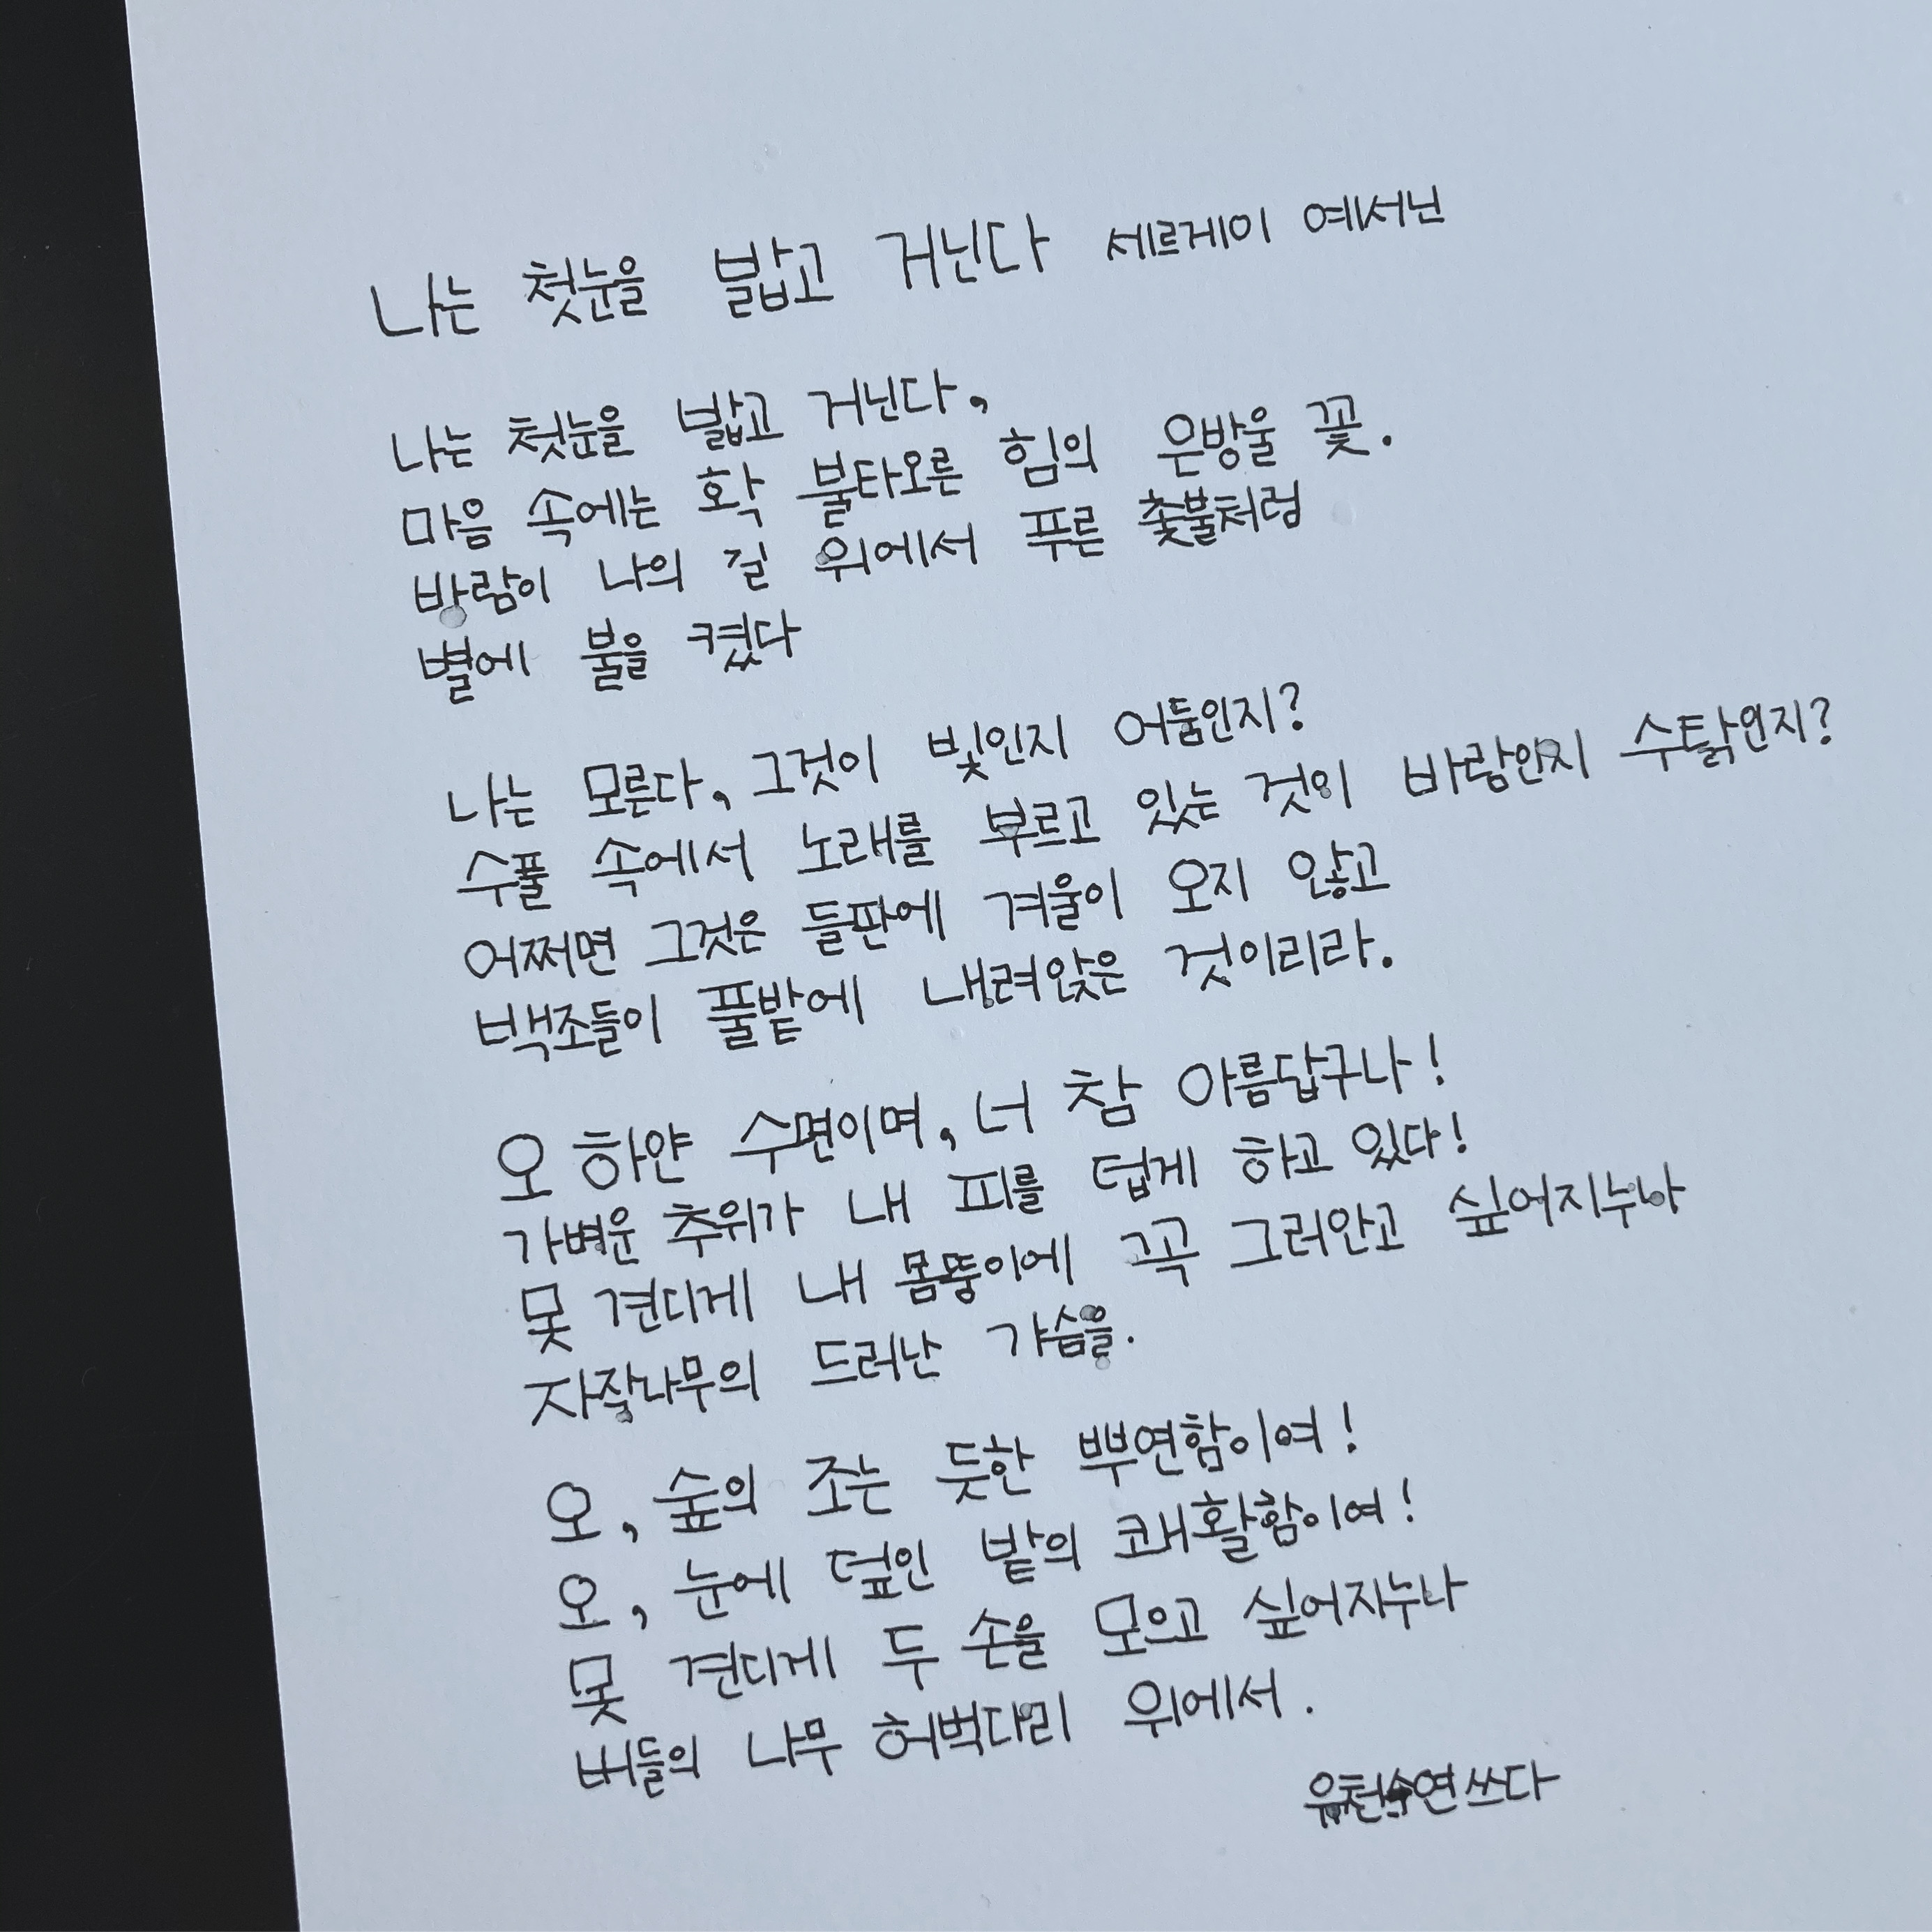 나는 첫눈을 밟고 거닌다 세르게이 예세닌
나는 첫눈을 밟고 거닌다,
마음 속에는 확 불타오른 힘의 은방울 꽃.
바람이 나의 길 위에서 푸른 촛불처럼
별에 불을 켰다
나는 모른다, 그것이 빛인지 어둠인지?
수풀 속에서 노래를 부르고 있는 것이 바람인지 수탉인지?
어쩌면 그것은 들판에 겨울이 오지 않고
백조들이 풀밭에 내려앉은 것이리라.
오 하얀 수면이며, 너 참 아름답구나!
가벼운 추위가 내 피를 덥게 하고 있다!
못 견디게 내 몸뚱이에 꼭 그러안고 싶어지누나
자작나무의 드러난 가슴을.
오, 숲의 조는 듯한 뿌연함이여!
오, 눈에 덮인 밭의 쾌활함이여!
못 견디게 두 손을 모으고 싶어지누나
버들의 나무 허벅다리 위에서.
쓰다